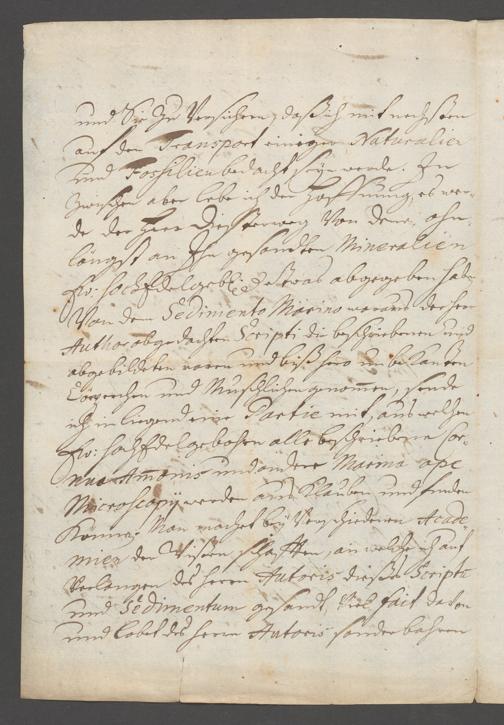 und Sie zu Versichern, daß ich mit nechsten
auf den Transport einiger Naturalien
und Fossilien bedacht seyn werde. In
zwischen aber lebe ich der Hoffnung, es wer-
de der Herr von dem, ohn-
längst an Ihn gesandten Mineralien
Ew: HochEdelgeb: etwas abgegeben hab.
Von dem Sedimento Marino woraus der Herr
Author obgedachten Scripti die beschriebenen und
abgebildeten raren und biß hero unbekandten
und Muschlichen genommen, sende
ich inliegend eine Partie mit, aus welchen
Ew: HochEdelgebohren alle beschriebene Cor-
nua Ammonis und andere Marina ope
Microscopij werden aus Klauben und finden
können. Man machet bey Verschiedenen Acade
mien der Wissenschafften, an welche ich auf
Verlangen des Herrn Autoris dieses Scriptum
und Sedimentum gesandt, viel fait davon
und lobet des Herrn Autoris sonderbahren